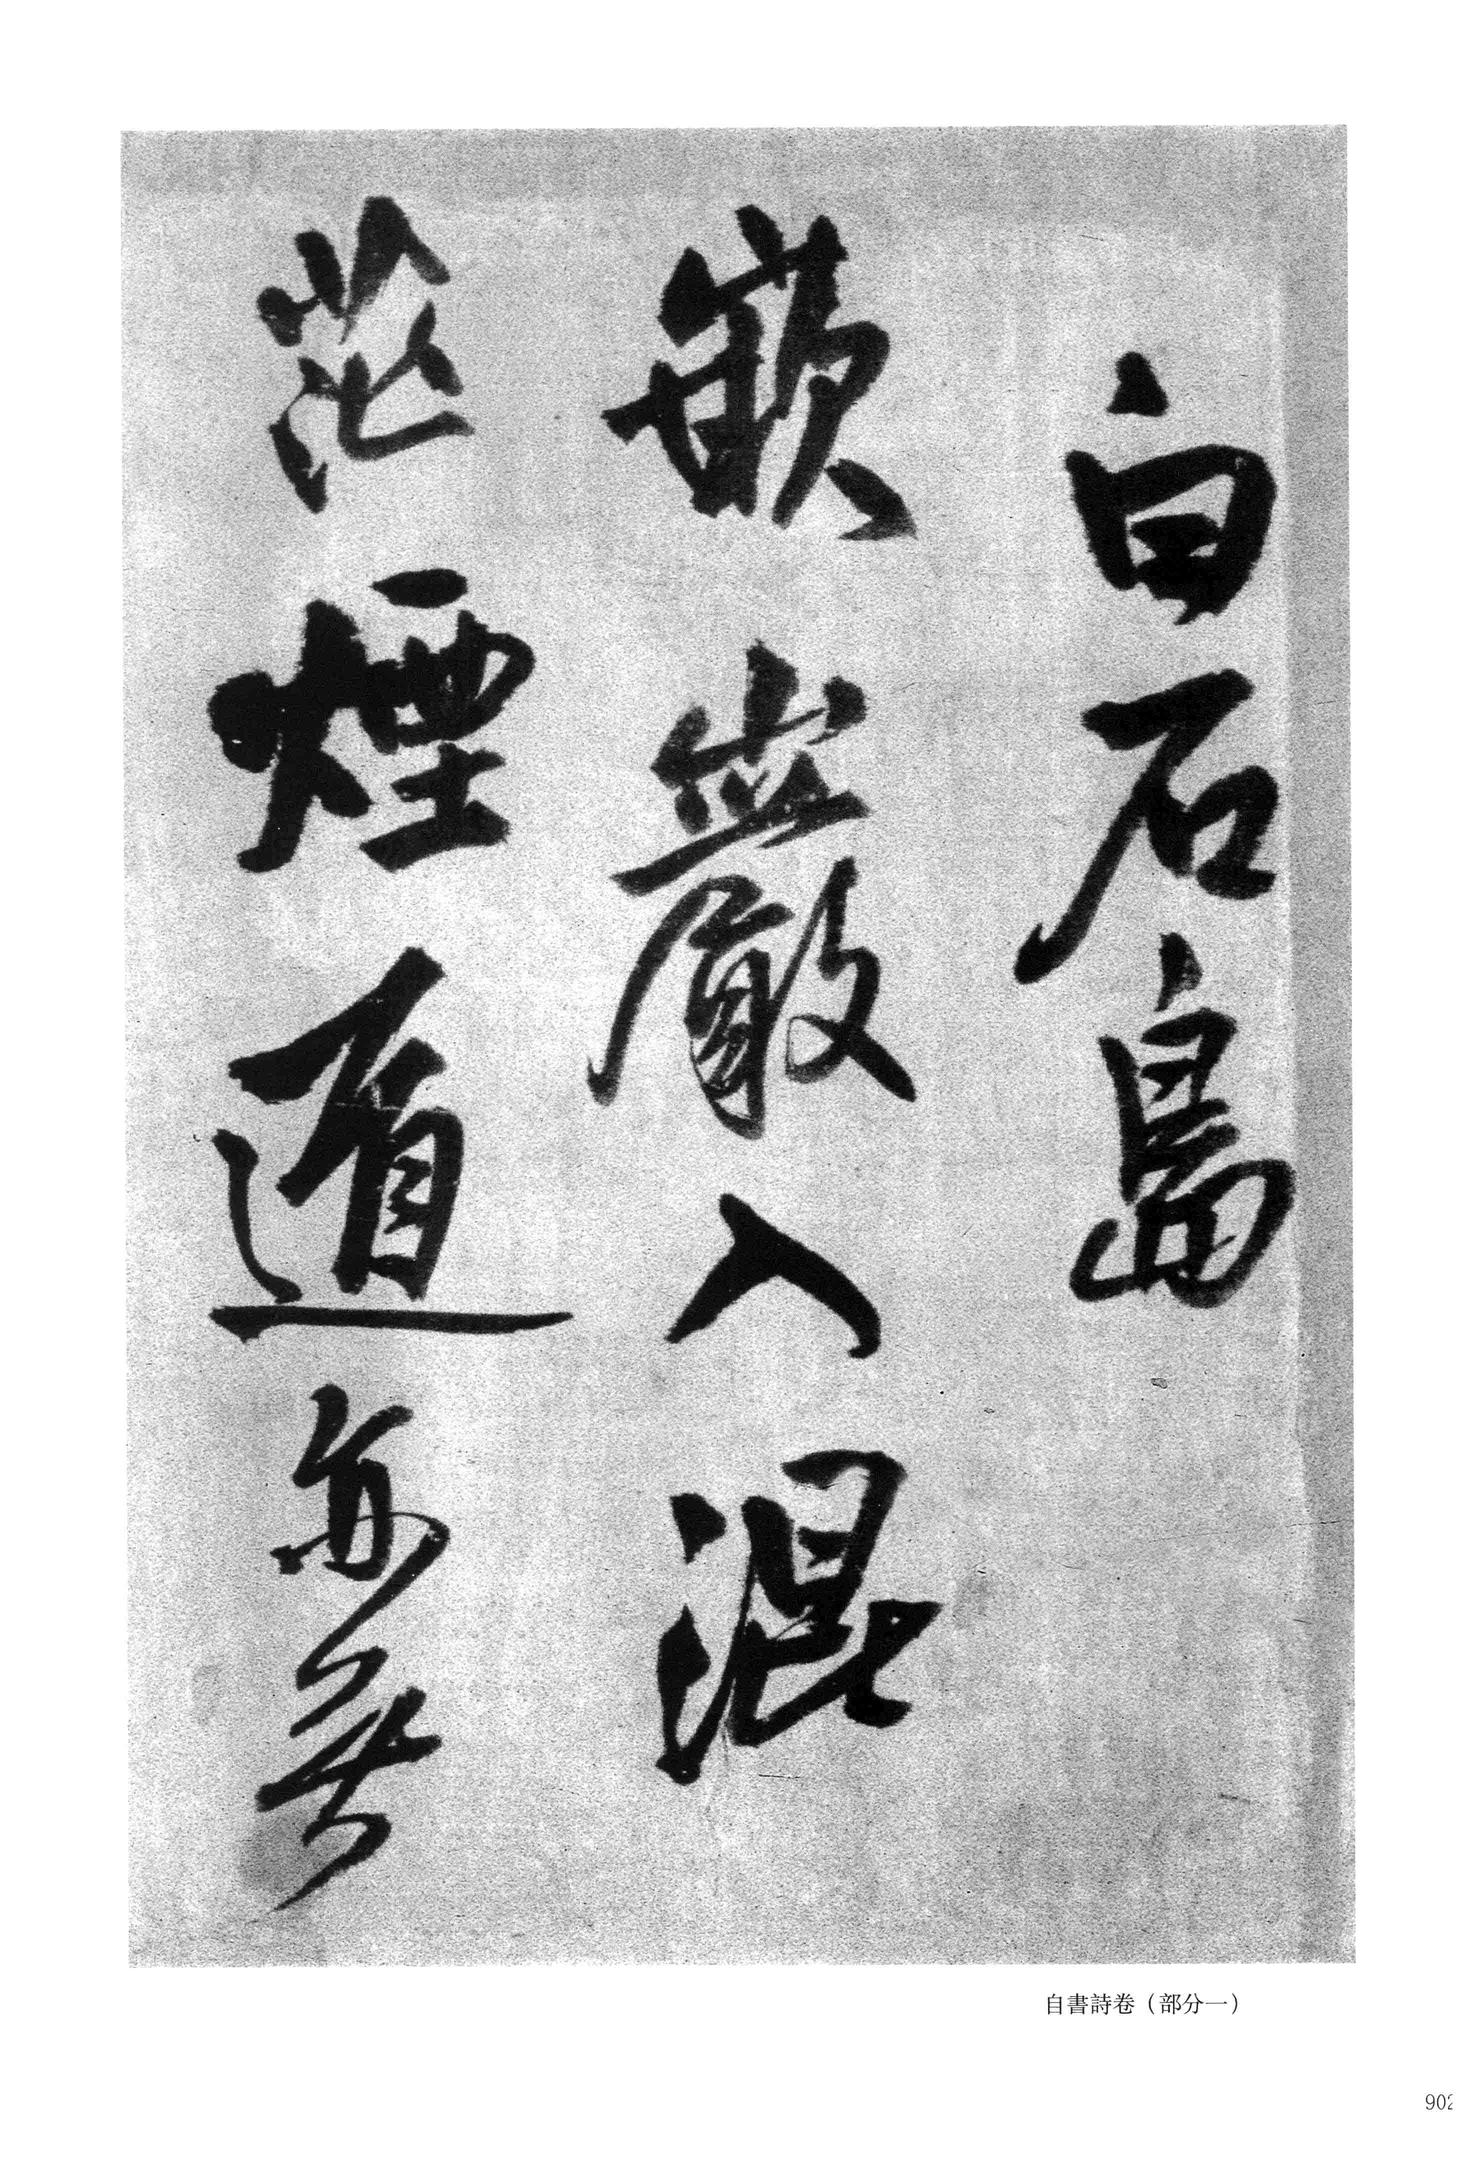 白石島
嵌巖入混
茫煙道亦無
自書詩卷（部分一）
902